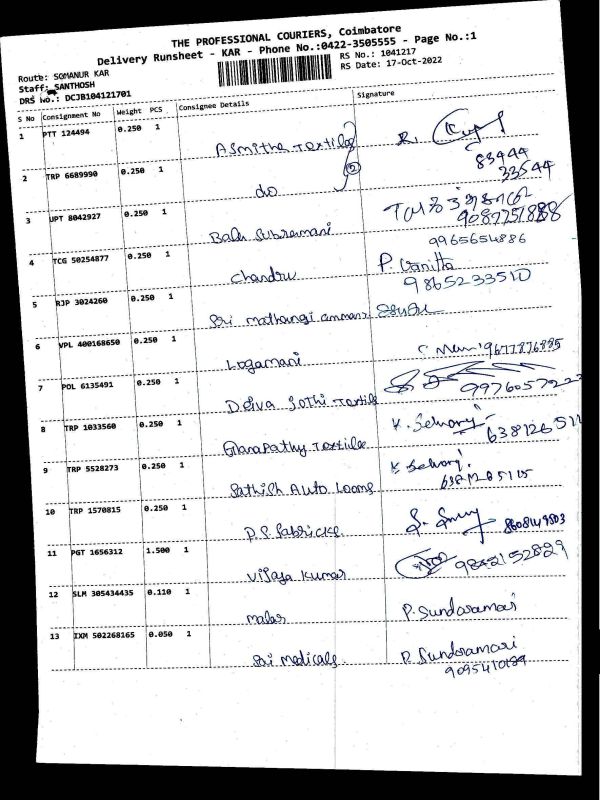 THE PROFESSIONAL COURIERS, Coimbatore
Delivery Runsheet - KAR - Phone No.:0422-3505555 - Page No.:1
Route: SOMANUR KAR
RS No.: 1041217
Staff: SANTHOSH
RS Date: 17-Oct-2022
DRS No.: DCJB104121701
S No Consignment No Weight PCS Consignee Details Signature
1 PTT 124494 0.250 1 Asmitha Textiles
83444
33544
2 TRP 6689990 0.250 1 do
3 UPT 8042927 0.250 1 Bala Subramani
9965654886
4 TCG 50254877 0.250 1 Chandru P. Vanitha
9865233510
5 RJP 3024260 0.250 1 Sri mathangi amman
6 VPL 400168650 0.250 1 Logamani
7 POL 6135491 0.250 1 Deiva Jothi Textile
8 TRP 1033560 0.250 1 Ganapathy Textiles K. Selvaraj
9 TRP 5528273 0.250 1 Sathish Auto Looms K. Selvaraj
10 TRP 1570815 0.250 1 P.S. Fabricks
11 PGT 1656312 1.500 1 Vijaya Kumar
12 SLM 305434435 0.110 1 P. Sundaramari
13 IXM 502268165 0.050 1 Sri Medicals P. Sundaramari